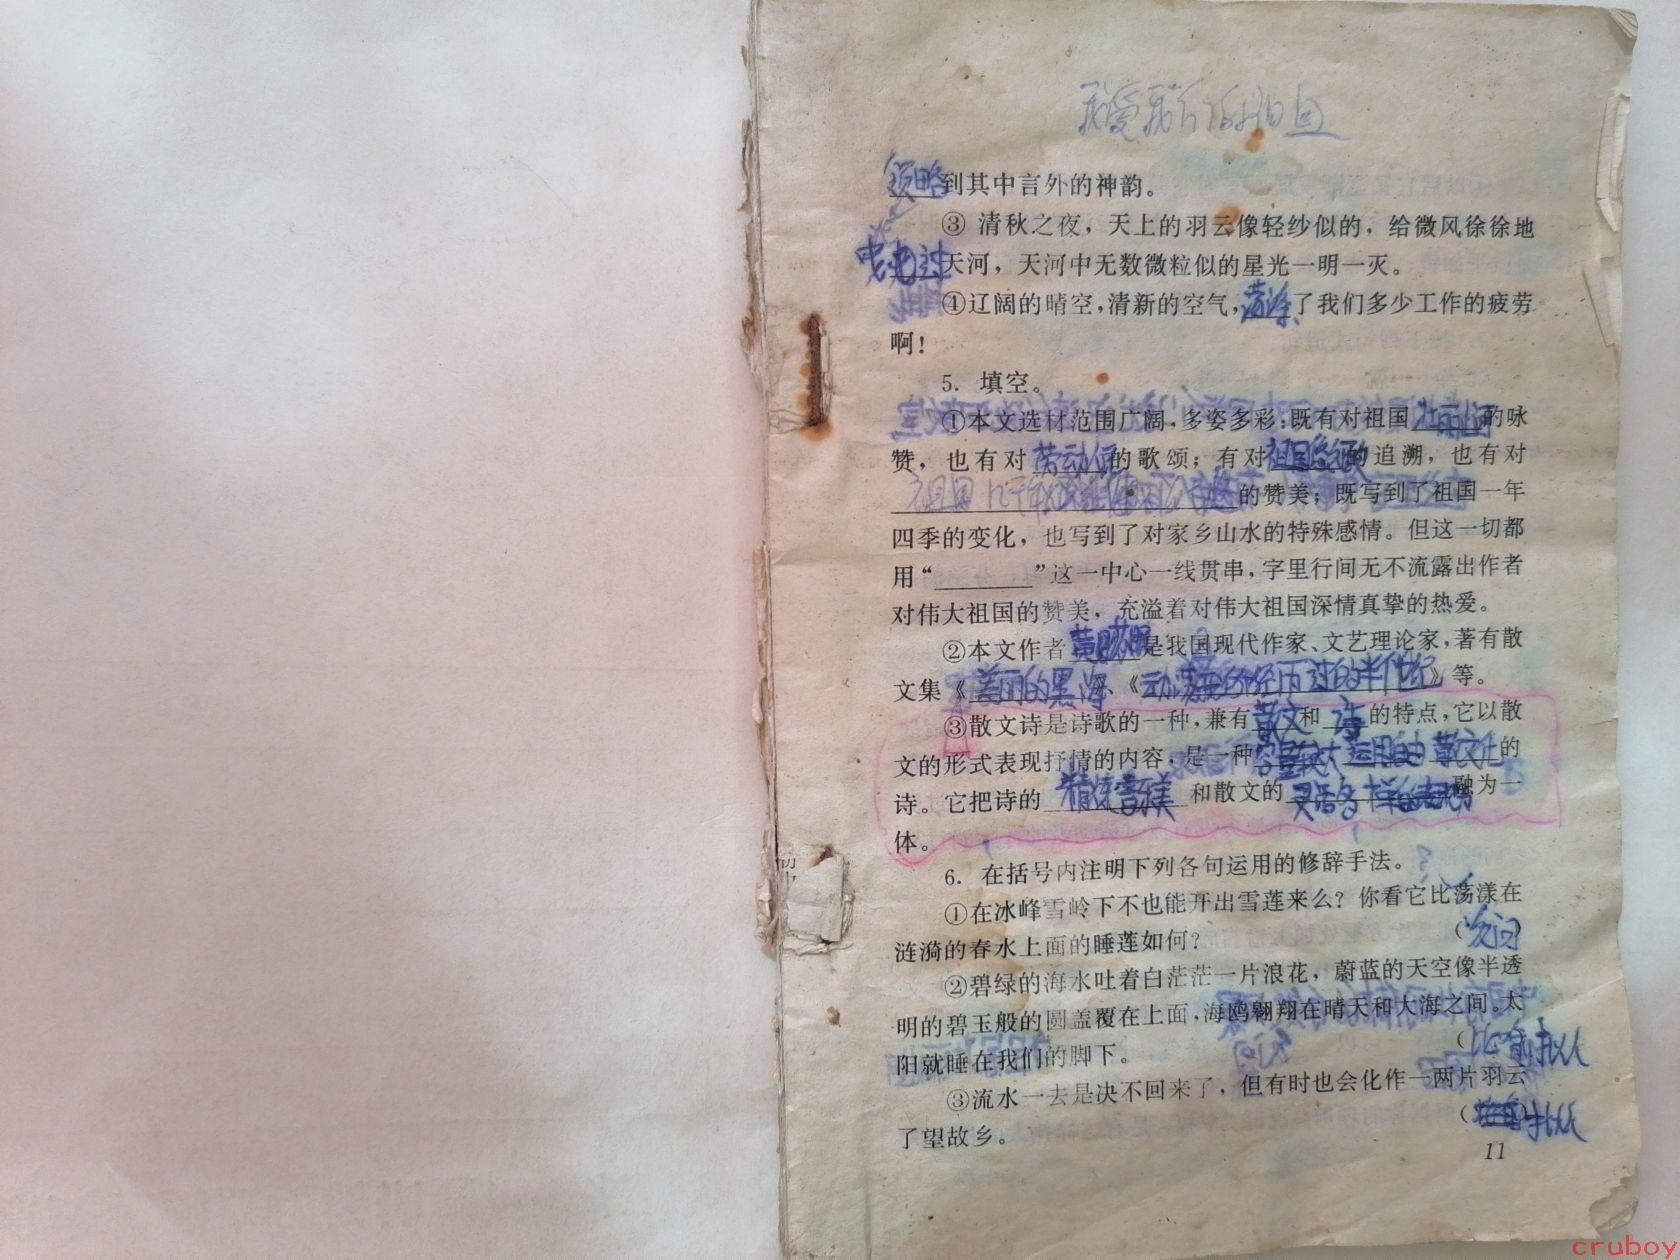 我爱我们的祖国
领略到其中言外的神韵。
③ 清秋之夜，天上的羽云像轻纱似的，给微风徐徐地
天河，天河中无数微粒似的星光一明一灭。
④辽阔的晴空，清新的空气，荡涤了我们多少工作的疲劳
啊！
5. 填空。
①本文选材范围广阔，多姿多彩：既有对祖国 的咏
赞，也有对劳动人民的歌颂；有对祖国 的追溯，也有对
祖国几千年 的赞美；既写到了祖国一年
四季的变化，也写到了对家乡山水的特殊感情。但这一切都
用“ ”这一中心一线贯串，字里行间无不流露出作者
对伟大祖国的赞美，充溢着对伟大祖国深情真挚的热爱。
②本文作者黄药眠是我国现代作家、文艺理论家，著有散
文集《美丽的黑海》、《动荡：我所经历的半个世纪》等。
③散文诗是诗歌的一种，兼有散文和 诗 的特点，它以散
文的形式表现抒情的内容，是一种容量较大 运用自由 散文化的
诗。它把诗的 精炼音乐美 和散文的 灵活多样的表现力融为一
体。
6. 在括号内注明下列各句运用的修辞手法。
①在冰峰雪岭下不也能开出雪莲来么？你看它比荡漾在
涟漪的春水上面的睡莲如何？ （反问）
②碧绿的海水吐着白茫茫一片浪花，蔚蓝的天空像半透
明的碧玉般的圆盖覆在上面，海鸥翱翔在晴天和大海之间。太
阳就睡在我们的脚下。 （比喻拟人
③流水一去是决不回来了，但有时也会化作一两片羽云
了望故乡。 （ ）拟人
11
cruboy